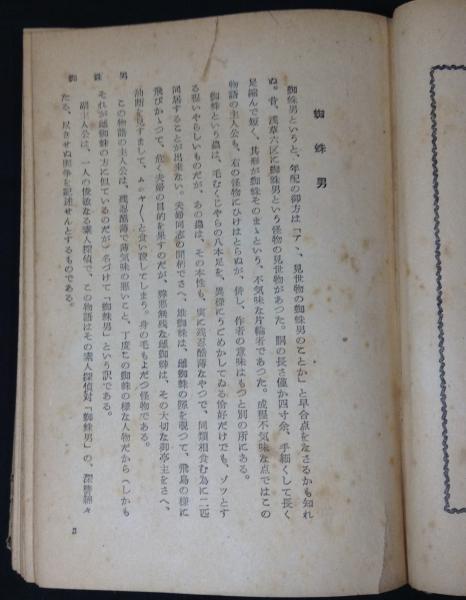 蜘蛛男
蜘蛛男
蜘蛛男というと、年配の御方は「アヽ、見世物の蜘蛛男のことか」と早合点をなさるかも知れ
ぬ。昔、浅草六区に蜘蛛男という怪物の見世物があつた。胴の長さ僅か四寸余、手細くして長く
足縮んで短く、其形が蜘蛛そのまゝという、不気味な片輪者であつた。成程不気味な点ではこの
物語の主人公も、右の怪物にひけはとらぬが、併し、作者の意味はもつと別の所にある。
蜘蛛という蟲は、毛むくじやらの八本足を、異様にうごめかしてゐる恰好だけでも、ゾッとす
る程いやらしいものだが、あの蟲は、その本性も、実に残忍酷薄なやつで、同類相食む為に二匹
同居することが出来ない。夫婦同志の間柄でさへ、雄蜘蛛は、雌蜘蛛の隙を覗つて、飛鳥の様に
飛びかゝつて、危く夫婦の目的を果すのだが、獰悪無残な雌蜘蛛は、その大切な御亭主をさへ、
油断を見すまして、ムシヤ〳〵と食い殺してしまう。身の毛もよだつ怪物である。
この物語の主人公は、残忍酷薄で薄気味の悪いこと、丁度この蜘蛛の様な人物だから（しかも
それが雌蜘蛛の方に似ているのだが）名づけて「蜘蛛男」という訳である。
副主人公は、一人の俊敏なる素人探偵で、この物語はその素人探偵対「蜘蛛男」の、深讐綿々
たる、尽きせぬ闘争を記述せんとするものである。
3